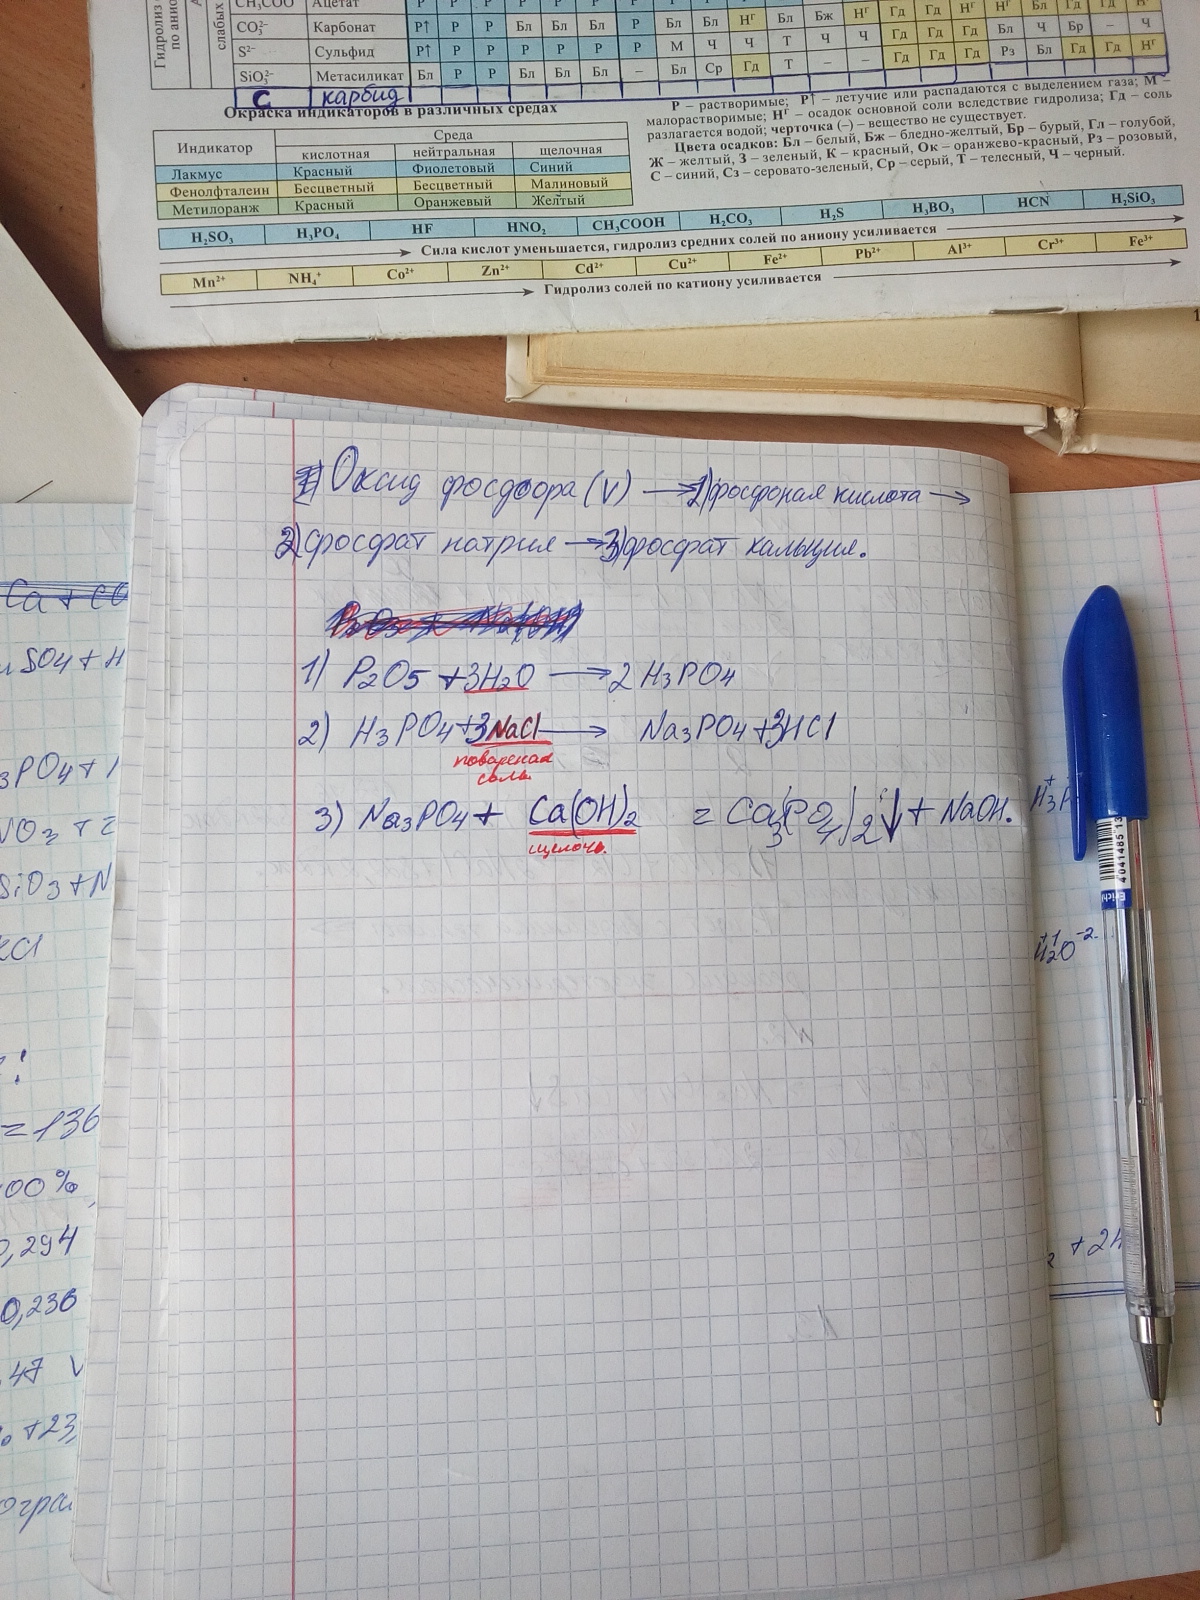 CH₃COO⁻ Ацетат
CO₃²⁻ Карбонат Р↑ Р Р Бл Бл Бл Р Бл Бл Нᴦ Бл Бж Нᴦ Гд Гд
S²⁻ Сульфид Р↑ Р Р Р Р Р Р М Ч Ч Т Ч Ч Гд Гд Гд Бл Ч Бр – Ч
SiO₃²⁻ Метасиликат Бл Р Р Бл Бл Бл – Бл Ср Гд Т – – Гд Гд Гд Рз Бл Гд Гд Нᴦ
C карбид
Гидролиз
по анио
слабых
Окраска индикаторов в различных средах
Индикатор Среда
кислотная нейтральная щелочная
Лакмус Красный Фиолетовый Синий
Фенолфталеин Бесцветный Бесцветный Малиновый
Метилоранж Красный Оранжевый Желтый
Р – растворимые; Р↑ – летучие или распадаются с выделением газа; М –
малорастворимые; Нᴦ – осадок основной соли вследствие гидролиза; Гд – соль
разлагается водой; черточка (–) – вещество не существует.
Цвета осадков: Бл – белый, Бж – бледно-желтый, Бр – бурый, Гл – голубой,
Ж – желтый, З – зеленый, К – красный, Ок – оранжево-красный, Рз – розовый,
С – синий, Сз – серовато-зеленый, Ср – серый, Т – телесный, Ч – черный.
H₂SO₃ H₃PO₄ HF HNO₂ CH₃COOH H₂CO₃ H₂S H₃BO₃ HCN H₂SiO₃
Сила кислот уменьшается, гидролиз средних солей по аниону усиливается
Mn²⁺ NH₄⁺ Co²⁺ Zn²⁺ Cd²⁺ Cu²⁺ Fe²⁺ Pb²⁺ Al³⁺ Cr³⁺ Fe³⁺
Гидролиз солей по катиону усиливается
Оксид фосфора (V) → 1) фосфорная кислота →
2) фосфат натрия → 3) фосфат кальция.
1) P₂O5 + 3H₂O → 2 H₃PO₄
2) H₃PO₄ + 3NaCl → Na₃PO₄ + 3HCl
поваренная
соль.
3) Na₃PO₄ + Ca(OH)₂ = Ca₃(PO₄)₂↓ + NaOH.
щелочь.
Ca + CO
SO4 + H
₃PO4 +
NO₃ + 2
SiO₃ + N
KCl
= 136
00%
0,294
0,236
,47 V
+ 23,
H₂O⁻²
+ 24
4041485 13
Erich